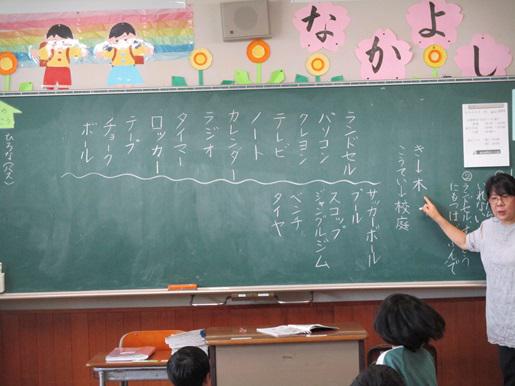 なかよし
き↓木
こうてい↓校庭
ランドセル
パソコン
クレヨン
テレビ
ノート
カレンダー
ラジオ
タイマー
ロッカー
テープ
チョーク
ボール
サッカーボール
プール
スコップ
ジャングルジム
ベンチ
タイヤ